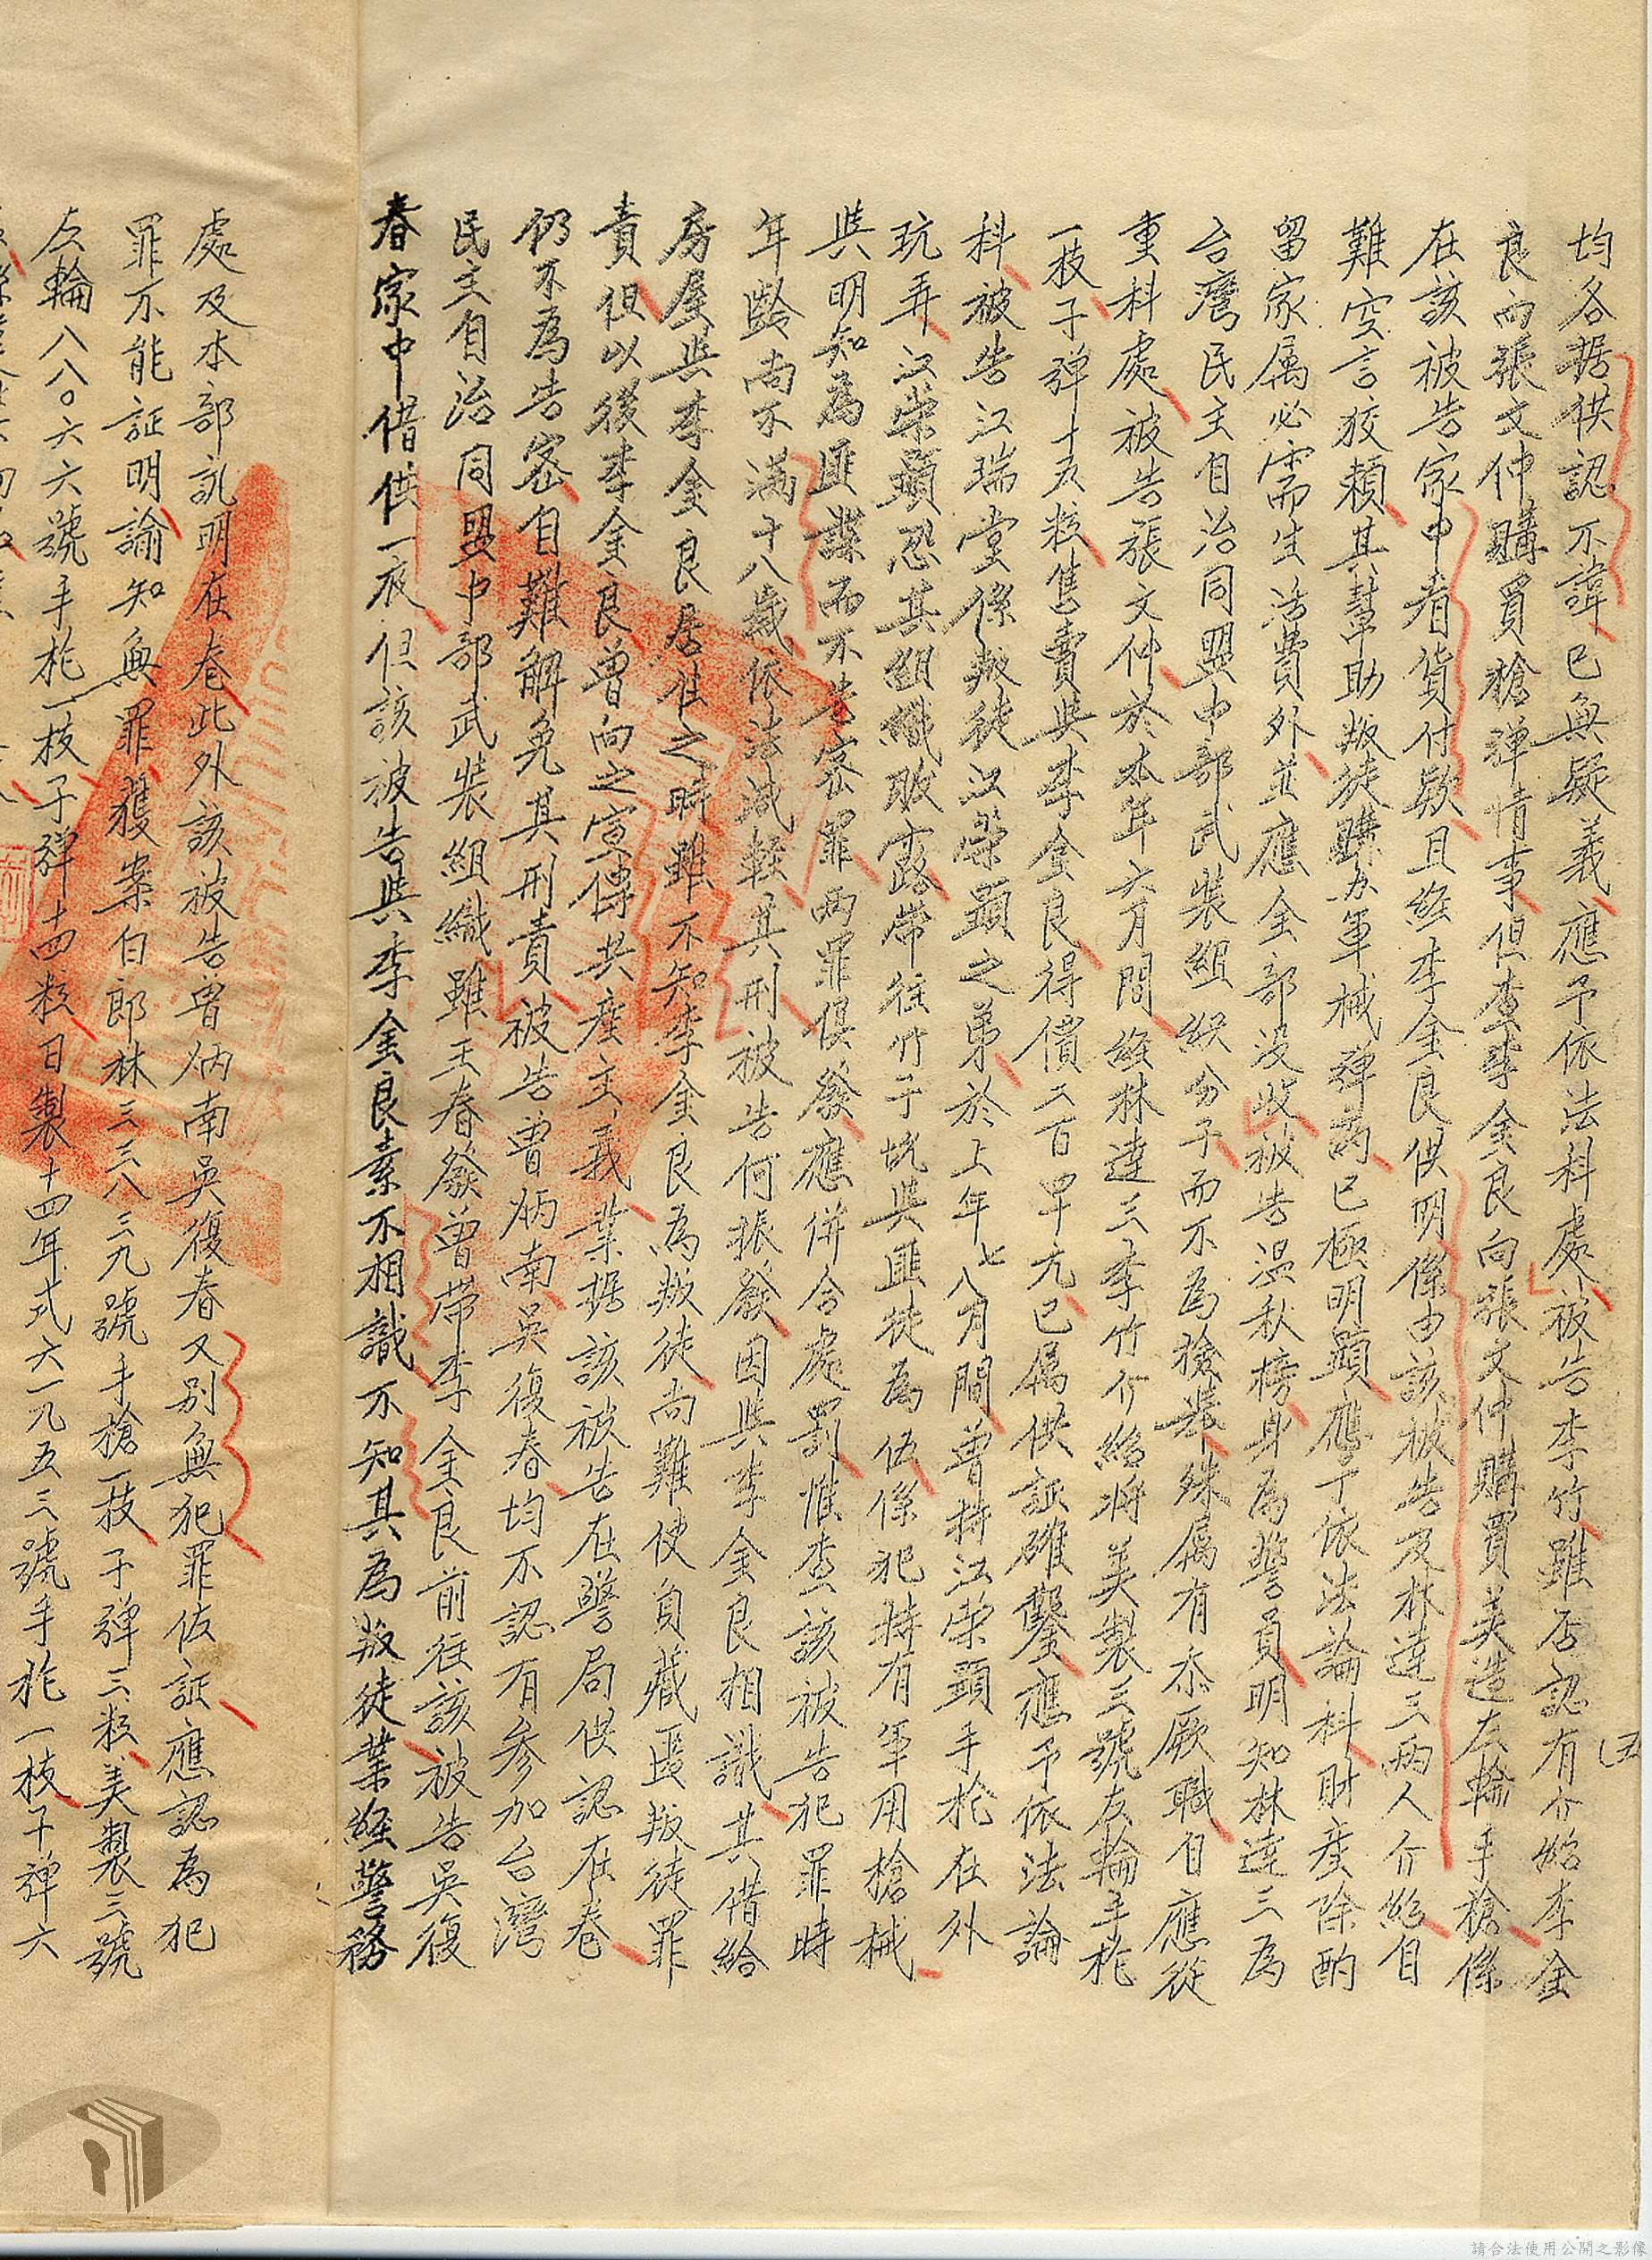 均各据供認不諱已無疑義應予依法科處被告李竹雖否認有介紹李金
良向張文仲購買槍彈情事但查李金良向張文仲購買美造左輪手槍係
在該被告家中看貨付欵且經李金良供明係由該被告及林達三兩人介紹自
難空言狡賴其幫助叛徒購办軍械彈葯已極明顯應予依法論科財產除酌
留家属必需生活費外並應全部沒收被告溫秋榜身為警員明知林達三為
台灣民主自治同盟中部武裝組織份子而不為檢舉殊属有忝厥職自應從
重科處被告張文仲於本年六月間經林達三李竹介紹將美製三號左輪手枪
一枝子弹十五粒售賣與李金良得價二百
元已属供証確鑿應予依法論
科被告江瑞堂係叛徒江榮顯之弟於上年七八月間曾持江榮顯手枪在外
玩弄江榮顯恐其組織敗露带往竹子坑與匪徒為伍係犯持有軍用槍械
與明知為匪諜而不告密罪兩罪俱發應併合處罰惟查該被告犯罪時
年齡尚不滿十八歲依法減輕其刑被告何振發因與李金良相識其借給
房屋與李金良居住之時雖不知李金良為叛徒尚難使負藏匿叛徒罪
責但以後李金良曾向之宣傳共產主義業据該被告在警局供認在卷
仍不為告密自難解免其刑責被告曾炳南吳復春均不認有參加台灣
民主自治同盟中部武裝組織雖王春發曾带李金良前往該被告吳復
春家中借供一夜但該被告與李金良素不相識不知其為叛徒業經警務
處及本部訊明在卷此外該被告曾炳南吳復春又別無犯罪佐証應認為犯
罪不能証明諭知無罪獲案白郎林三三八三九號手槍一枝子彈三粒美製三號
左輪八八〇六六號手枪一枝子彈十四粒日製十四年式六一九五三號手枪一枝子彈六